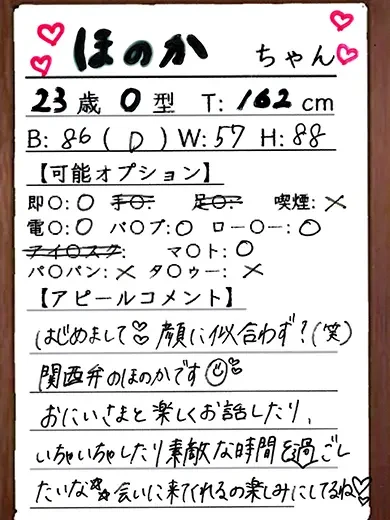 ほのか ちゃん
23歳 O型 T:162cm
B:86(D)W:57 H:88
【可能オプション】
即〇:〇 手〇: 足〇: 喫煙:×
電〇:〇 バ〇ブ:〇 ロー〇ー:〇
アイ〇スク: マ〇ト:〇
パ〇パン:× タ〇ゥー:×
【アピールコメント】
はじめまして♡顔に似合わず?(笑)
関西弁のほのかです☺♡
おにいさまと楽しくお話したり、
いちゃいちゃしたり素敵な時間を過ごし
たいな☆☆会いに来てくれるの楽しみにしてるね♡